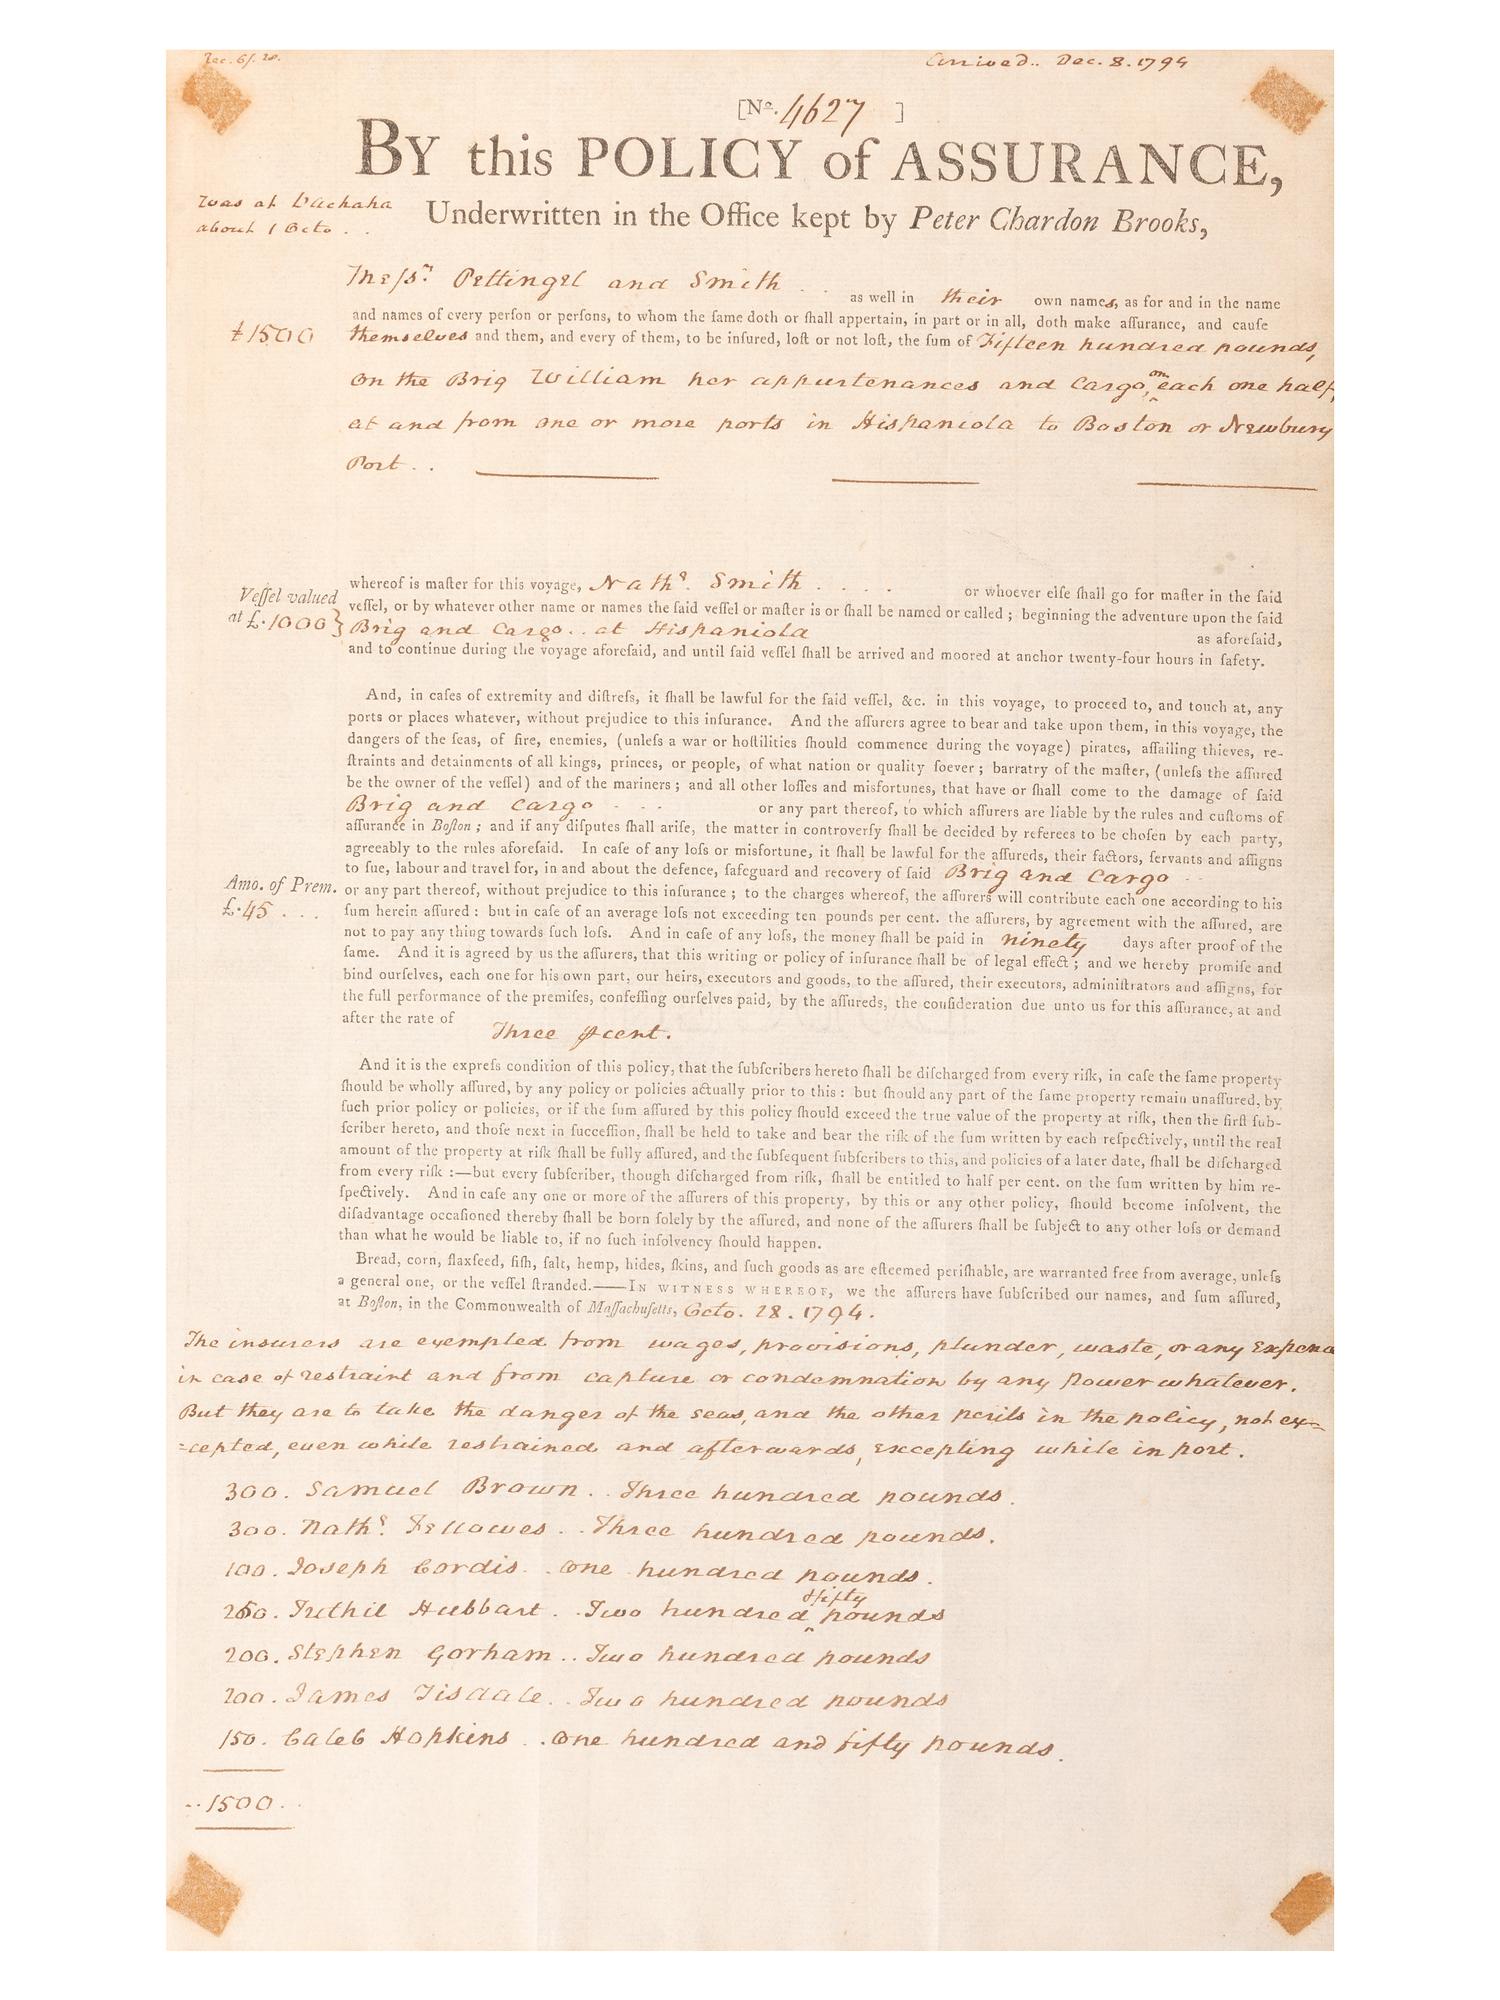 Arrived.. Dec. 8. 1794
[No. 4627 ]
BY this POLICY of ASSURANCE,
Was at
about 1 Octo . .
Underwritten in the Office kept by Peter Chardon Brooks,
Meſsrs. Pettingel and Smith . . as well in their own names, as for and in the name
and names of every perſon or perſons, to whom the ſame doth or ſhall appertain, in part or in all, doth make aſſurance, and cauſe
£1500
themselves and them, and every of them, to be inſured, loſt or not loſt, the ſum of Fifteen hundred pounds,
on the Brig William her appurtenances and Cargo, on each one half,
at and from one or more ports in Hispaniola to Boston or Newbury
Port . .
whereof is maſter for this voyage, Nathl. Smith . . . . or whoever elſe ſhall go for maſter in the ſaid
Veſſel valued
at £.1000}
veſſel, or by whatever other name or names the ſaid veſſel or maſter is or ſhall be named or called ; beginning the adventure upon the ſaid
Brig and Cargo . . at Hispaniola as aforeſaid,
and to continue during the voyage aforeſaid, and until ſaid veſſel ſhall be arrived and moored at anchor twenty-four hours in ſafety.
And, in caſes of extremity and diſtreſs, it ſhall be lawful for the ſaid veſſel, &c. in this voyage, to proceed to, and touch at, any
ports or places whatever, without prejudice to this inſurance. And the aſſurers agree to bear and take upon them, in this voyage, the
dangers of the ſeas, of fire, enemies, (unleſs a war or hoſtilities ſhould commence during the voyage) pirates, aſſailing thieves, re-
ſtraints and detainments of all kings, princes, or people, of what nation or quality ſoever ; barratry of the maſter, (unleſs the aſſured
be the owner of the veſſel) and of the mariners ; and all other loſſes and misfortunes, that have or ſhall come to the damage of ſaid
Brig and Cargo . . . or any part thereof, to which aſſurers are liable by the rules and cuſtoms of
aſſurance in Boſton ; and if any diſputes ſhall ariſe, the matter in controverſy ſhall be decided by referees to be choſen by each party,
agreeably to the rules aforeſaid. In caſe of any loſs or misfortune, it ſhall be lawful for the aſſureds, their factors, ſervants and aſſigns
to ſue, labour and travel for, in and about the defence, ſafeguard and recovery of ſaid Brig and Cargo . .
Amo. of Prem.
£.45 . . .
or any part thereof, without prejudice to this inſurance ; to the charges whereof, the aſſurers will contribute each one according to his
ſum herein aſſured : but in caſe of an average loſs not exceeding ten pounds per cent. the aſſurers, by agreement with the aſſured, are
not to pay any thing towards ſuch loſs. And in caſe of any loſs, the money ſhall be paid in ninety days after proof of the
ſame. And it is agreed by us the aſſurers, that this writing or policy of inſurance ſhall be of legal effect ; and we hereby promiſe and
bind ourſelves, each one for his own part, our heirs, executors and goods, to the aſſured, their executors, adminiſtrators and aſſigns, for
the full performance of the premiſes, confeſſing ourſelves paid, by the aſſureds, the conſideration due unto us for this aſſurance, at and
after the rate of Three ⅌cent.
And it is the expreſs condition of this policy, that the ſubſcribers hereto ſhall be diſcharged from every riſk, in caſe the ſame property
ſhould be wholly aſſured, by any policy or policies actually prior to this : but ſhould any part of the ſame property remain unaſſured, by
ſuch prior policy or policies, or if the ſum aſſured by this policy ſhould exceed the true value of the property at riſk, then the firſt ſub-
ſcriber hereto, and thoſe next in ſucceſſion, ſhall be held to take and bear the riſk of the ſum written by each reſpectively, until the real
amount of the property at riſk ſhall be fully aſſured, and the ſubſequent ſubſcribers to this, and policies of a later date, ſhall be diſcharged
from every riſk :—but every ſubſcriber, though diſcharged from riſk, ſhall be entitled to half per cent. on the ſum written by him re-
ſpectively. And in caſe any one or more of the aſſurers of this property, by this or any other policy, ſhould become inſolvent, the
diſadvantage occaſioned thereby ſhall be born ſolely by the aſſured, and none of the aſſurers ſhall be ſubject to any other loſs or demand
than what he would be liable to, if no ſuch inſolvency ſhould happen.
Bread, corn, flaxſeed, fiſh, ſalt, hemp, hides, ſkins, and ſuch goods as are eſteemed periſhable, are warranted free from average, unleſs
a general one, or the veſſel ſtranded.——IN WITNESS WHEREOF, we the aſſurers have ſubſcribed our names, and ſum aſſured,
at Boſton, in the Commonwealth of Maſſachuſetts, Octo. 28. 1794.
The insurers are exempled from wages, provisions, plunder, waste, or any Expence
in case of restraint and from capture or condemnation by any power whatever.
But they are to take the danger of the seas, and the other perils in the policy, not ex=
=cepted, even while restrained and afterwards, excepting while in port.
300. Samuel Brown . . Three hundred pounds .
300. Nathl. Fellowes . . Three hundred pounds.
100. Joseph Cordis . . One hundred pounds .
250. Tuthil Hubbart . . Two hundred fifty pounds
200. Stephen Gorham . . Two hundred pounds
200. James Tisdale . . Two hundred pounds
150. Caleb Hopkins . . One hundred and fifty pounds .
. . 1500 . .